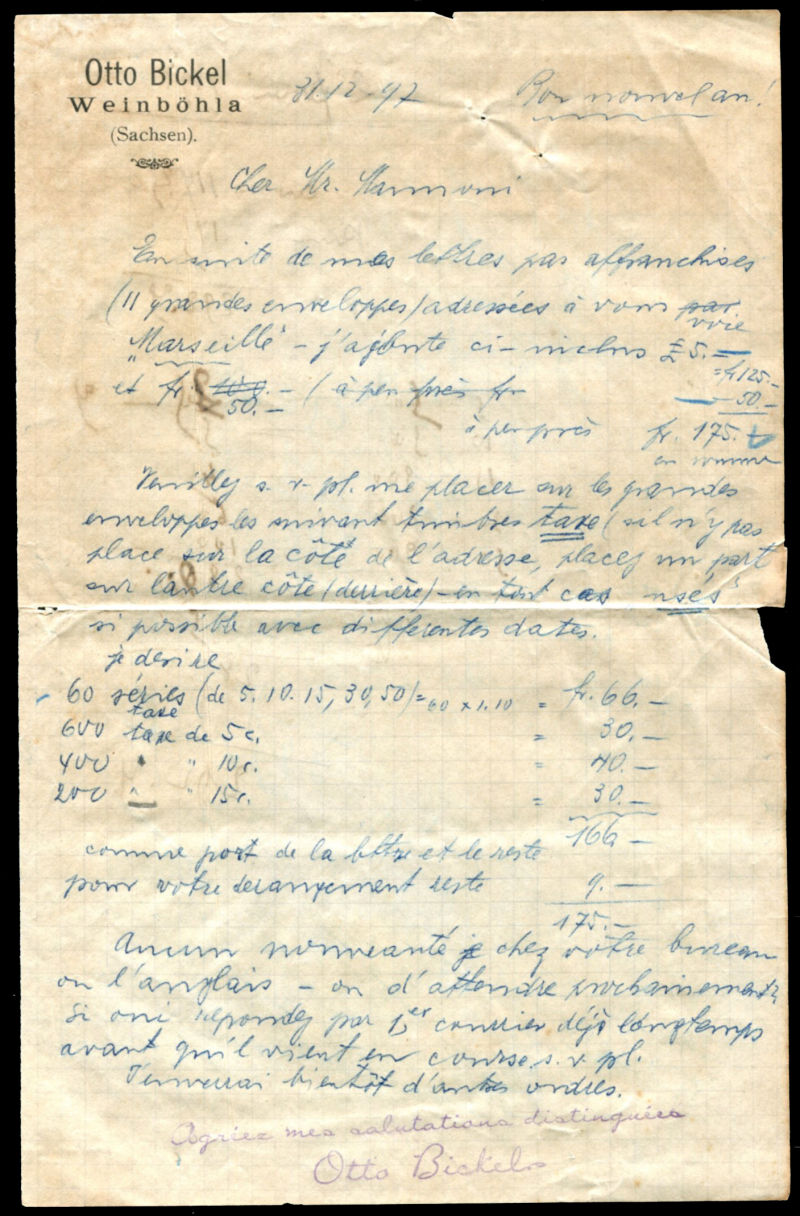 Otto Bickel
Weinböhla
(Sachsen).
31.12.97
Bon nouvel an!
Cher Mr. Marmoni
En suite de mes lettres pas affranchises
(11 grandes enveloppes) adressées à vous par
voie
"Marseille" – j'ajoute ci-inclus £ 5.–
= fr 125.–
et fr. 100.– (à peu près fr
50.–
50.–
à peu près fr. 175.–
en somme
Veuillez s. v. pl. me placer sur les grandes
enveloppes les suivant timbres taxe (s'il n'y pas
place sur la côté de l'adresse, placez un part
sur l'autre côte (derrière) – en tout cas "usés"
si possible avec differentes dates.
je desire
60 séries (de 5. 10. 15, 30, 50) = 60 x 1.10 = fr. 66.–
taxe
600 taxe de 5 c. = 30.–
400 " " 10 c. = 40.–
200 " " 15 c. = 30.–
166 –
comme port de la lettre et le reste
pour votre derangement reste 9.–
175.–
Aucun nouveauté je chez votre bureau
ou l'anglais – ou d'attendre prochainement?
Si oui repondez par 1er courrier déjà longtemps
avant qu'il vient en course s. v. pl.
J'enverrai bientôt d'autres ordres.
Agriez mes salutations distinguées
Otto Bickel